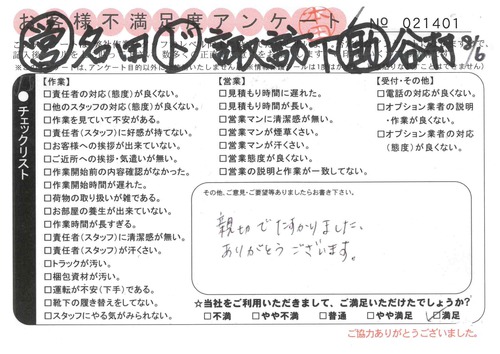 お客様不満足度アンケート
№ 021401
営 名田 ド 諏訪下 助 谷村 8/6
チェックリスト
【作業】
□責任者の対応(態度)が良くない。
□他のスタッフの対応(態度)が良くない。
□作業を見ていて不安がある。
□責任者(スタッフ)に好感が持てない。
□お客様への挨拶が出来ていない。
□ご近所への挨拶・気遣いが無い。
□作業開始前の内容確認がなかった。
□作業開始時間が遅れた。
□荷物の取り扱いが雑である。
□お部屋の養生が出来ていない。
□作業時間が長すぎる。
□責任者(スタッフ)に清潔感が無い。
□責任者(スタッフ)が汗くさい。
□トラックが汚い。
□梱包資材が汚い。
□運転が不安(下手)である。
□靴下の履き替えをしてない。
□スタッフにやる気がみられない。
【営業】
□見積もり時間に遅れた。
□見積もり時間が長い。
□営業マンに清潔感が無い。
□営業マンが煙草くさい。
□営業マンが汗くさい。
□営業態度が良くない。
□営業の説明と作業が一致してない。
【受付・その他】
□電話の対応が良くない。
□オプション業者の説明
・作業が良くない。
□オプション業者の対応
(態度)が良くない。
その他、ご意見・ご要望等ありましたらお書き下さい。
親切でたすかりました。
ありがとうございます。
☆当社をご利用いただきまして、ご満足いただけたでしょうか?
□不満 □やや不満 □普通 □やや満足 ☑満足
ご協力ありがとうございました。